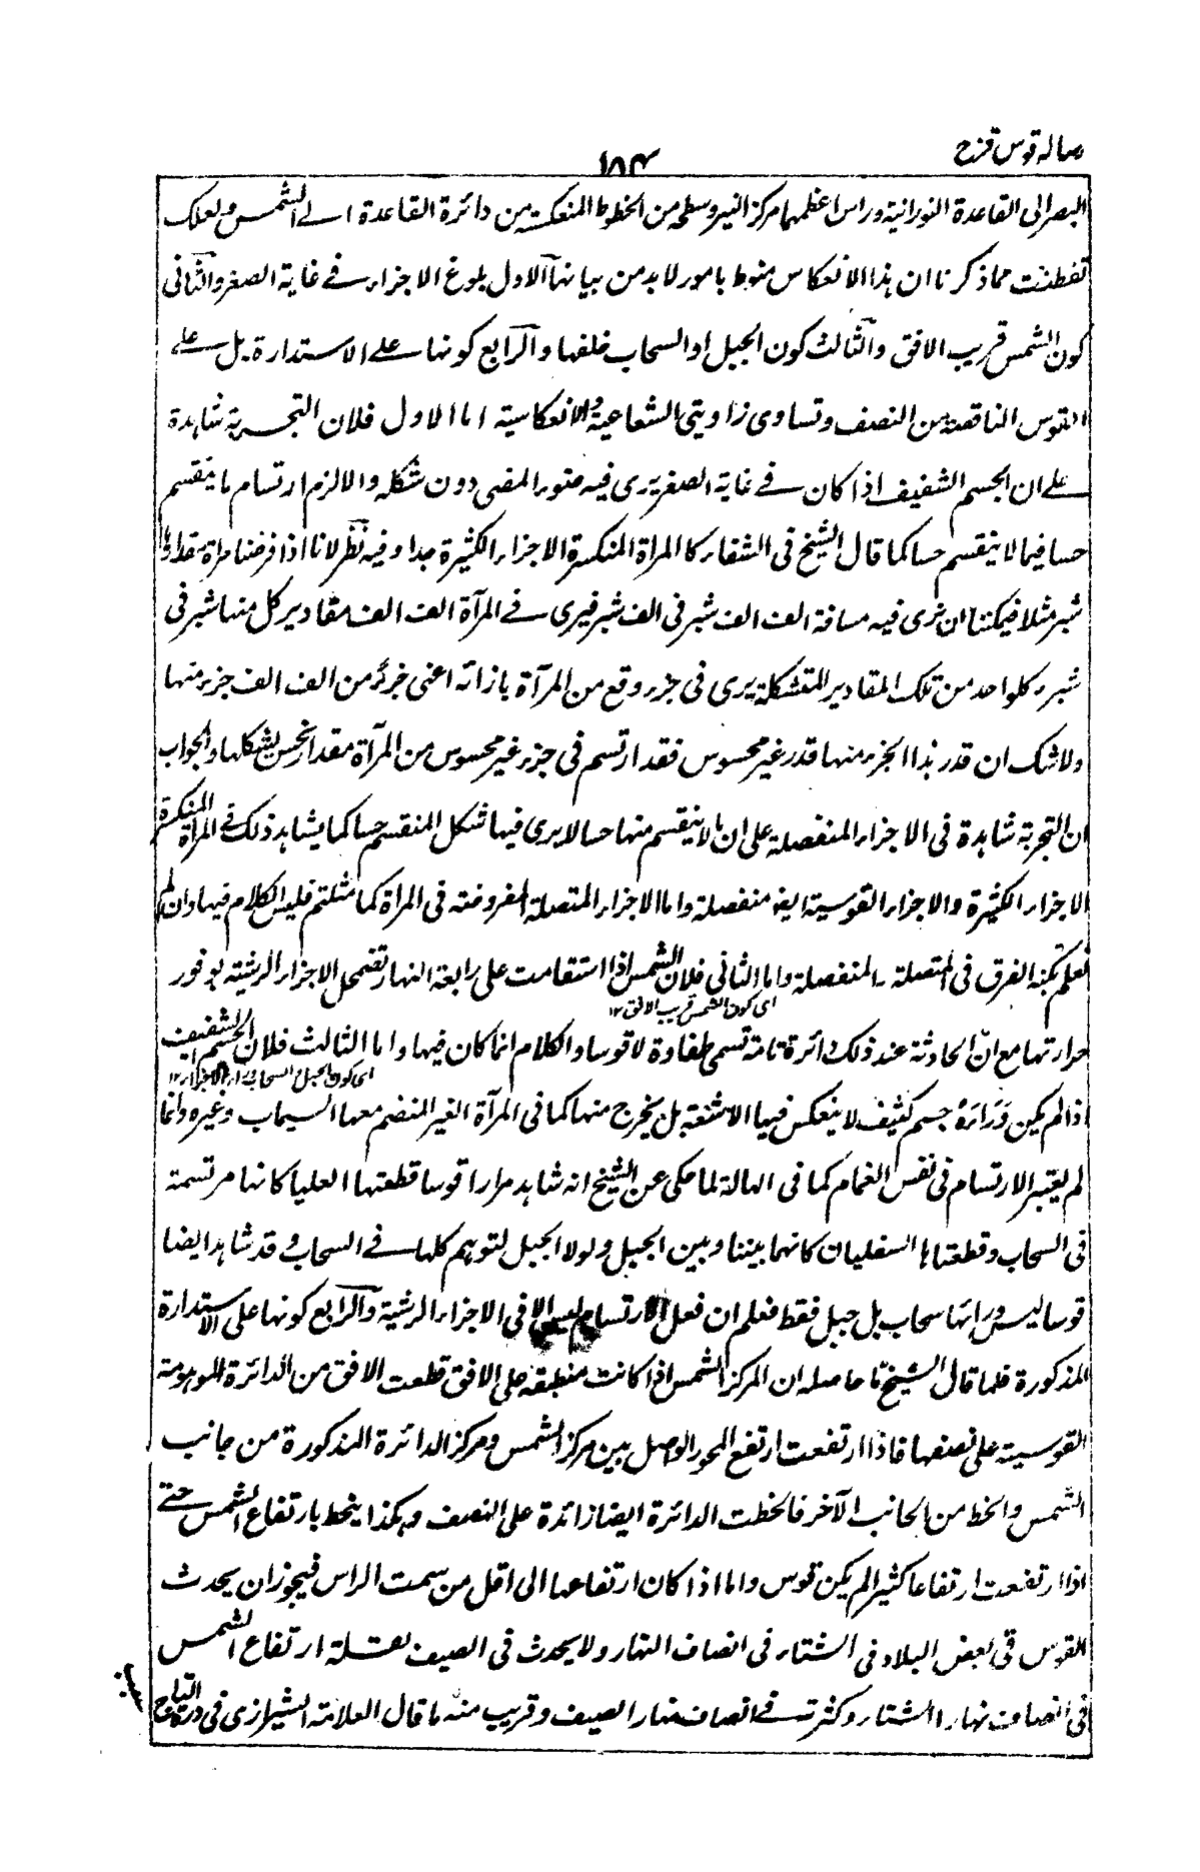 رساله قوس قزح
١٨٣
البصر الى القاعدة النورانية وراس اعظمها مركز النير وسطحه من الخطوط المنعكسة من دائرة القاعدة الى الشمس ولعلك
تفطنت مما ذكرنا ان هذا الانعكاس منوط بامور لابد من بيانها الاول بلوغ الاجزاء فى غاية الصغر والثانى
كون الشمس قريب الافق والثالث كون الجبل او السحاب خلفها والرابع كونها على الاستدارة بل على
القوس الناقصة من النصف وتساوى زاويتى الشعاعية والانعكاسية اما الاول فلان التجربة شاهدة
على ان الجسم الشفيف اذا كان فى غاية الصغر يرى فيه ضوء المضى دون شكله والا لزم ارتسام ما ينقسم
حسا فيما لا ينقسم حسا كما قال الشيخ فى الشفاء كالمراة المنكسرة الاجزاء الكثيرة جدا وفيه نظر لانا اذا فرضنا مراة مقدارها
شبر مثلا فيمكننا ان نرى فيه مسافة الف الف شبر فى الف شبر فيرى فى المرآة الف الف مقادير كل منها شبر فى
شبر وكلواحد من تلك المقادير المتشكلة يرى فى جزء وقع من المرآة بازائه اعنى جزء من الف الف جزء منها
ولا شك ان قدر هذا الجزء منها قدر غير محسوس فقد ارتسم فى جزء غير محسوس من المرآة مقدار نحس بشكلها والجواب
ان التجربة شاهدة فى الاجزاء المنفصلة على ان ما لا ينقسم منها حسا لا يرى فيها شكل المنقسم حسا كما يشاهد ذلك فى المراة المنكسرة
الاجزاء الكثيرة والاجزاء القوسية ايضا منفصلة واما الاجزاء المتصلة المفروضة فى المراة كما مثلتم فليس الكلام فيها وان لم
نعلم بكنه الفرق فى المتصلة والمنفصلة واما الثانى فلان الشمس اذا استقامت على رابعة النهار تضمحل الاجزاء الرشية بوفور
اى كون الشمس قريب الافق ١٢
حرارتها مع ان الحادثة عند ذلك دائرة تامة تسمى طفاوة لا قوسا والكلام انما كان فيها واما الثالث فلان الجسم الشفيف
اى كون الجبل او السحاب وراء الاجزاء ١٢
اذا لم يكن وَرَاءَهُ جسم كثيف لا ينعكس فيها الاشعة بل يخرج منها كما فى المرآة الغير المنضم معها السيماب وغيره وانما
لم يعتبر الارتسام فى نفس الغمام كما فى الهالة لما حكى عن الشيخ انه شاهد مرارا قوسا قطعتها العليا كانها مرتسمة
فى السحاب وقطعتاها السفليان كانهما بيننا وبين الجبل ولولا الجبل لتوهم كلها فى السحاب وقد شاهد ايضا
قوسا ليس ورائها سحاب بل جبل فقط فعلم ان فعل الارتسام ليس الا فى الاجزاء الرشية والرابع كونها على الاستدارة
المذكورة فلما قال الشيخ ما حاصله ان المركز الشمس اذا كانت منطبقة على الافق قطعت الافق من الدائرة الموهومة
القوسية على نصفها فاذا ارتفعت ارتفع المحور الواصل بين مركز الشمس ومركز الدائرة المذكورة من جانب
الشمس وانحط من الجانب الآخر فانحطت الدائرة ايضا زائدة على النصف وهكذا ينحط بارتفاع الشمس حتى
اذا ارتفعت ارتفاعا كثيرا لم يكن قوس واما اذا كان ارتفاعها الى اقل من سمت الراس فيجوز ان يحدث
القوس فى بعض البلاد فى الشتاء فى انصاف النهار ولا يحدث فى الصيف لقلة ارتفاع الشمس
فى انصاف نهار الشتاء وكثرته فى انصاف نهار الصيف وقريب منه ما قال العلامة الشيرازى فى درة التاج